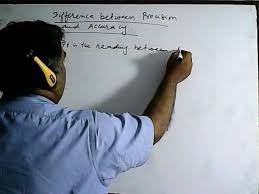 Difference between Precision
and Accuracy
It is the reading between